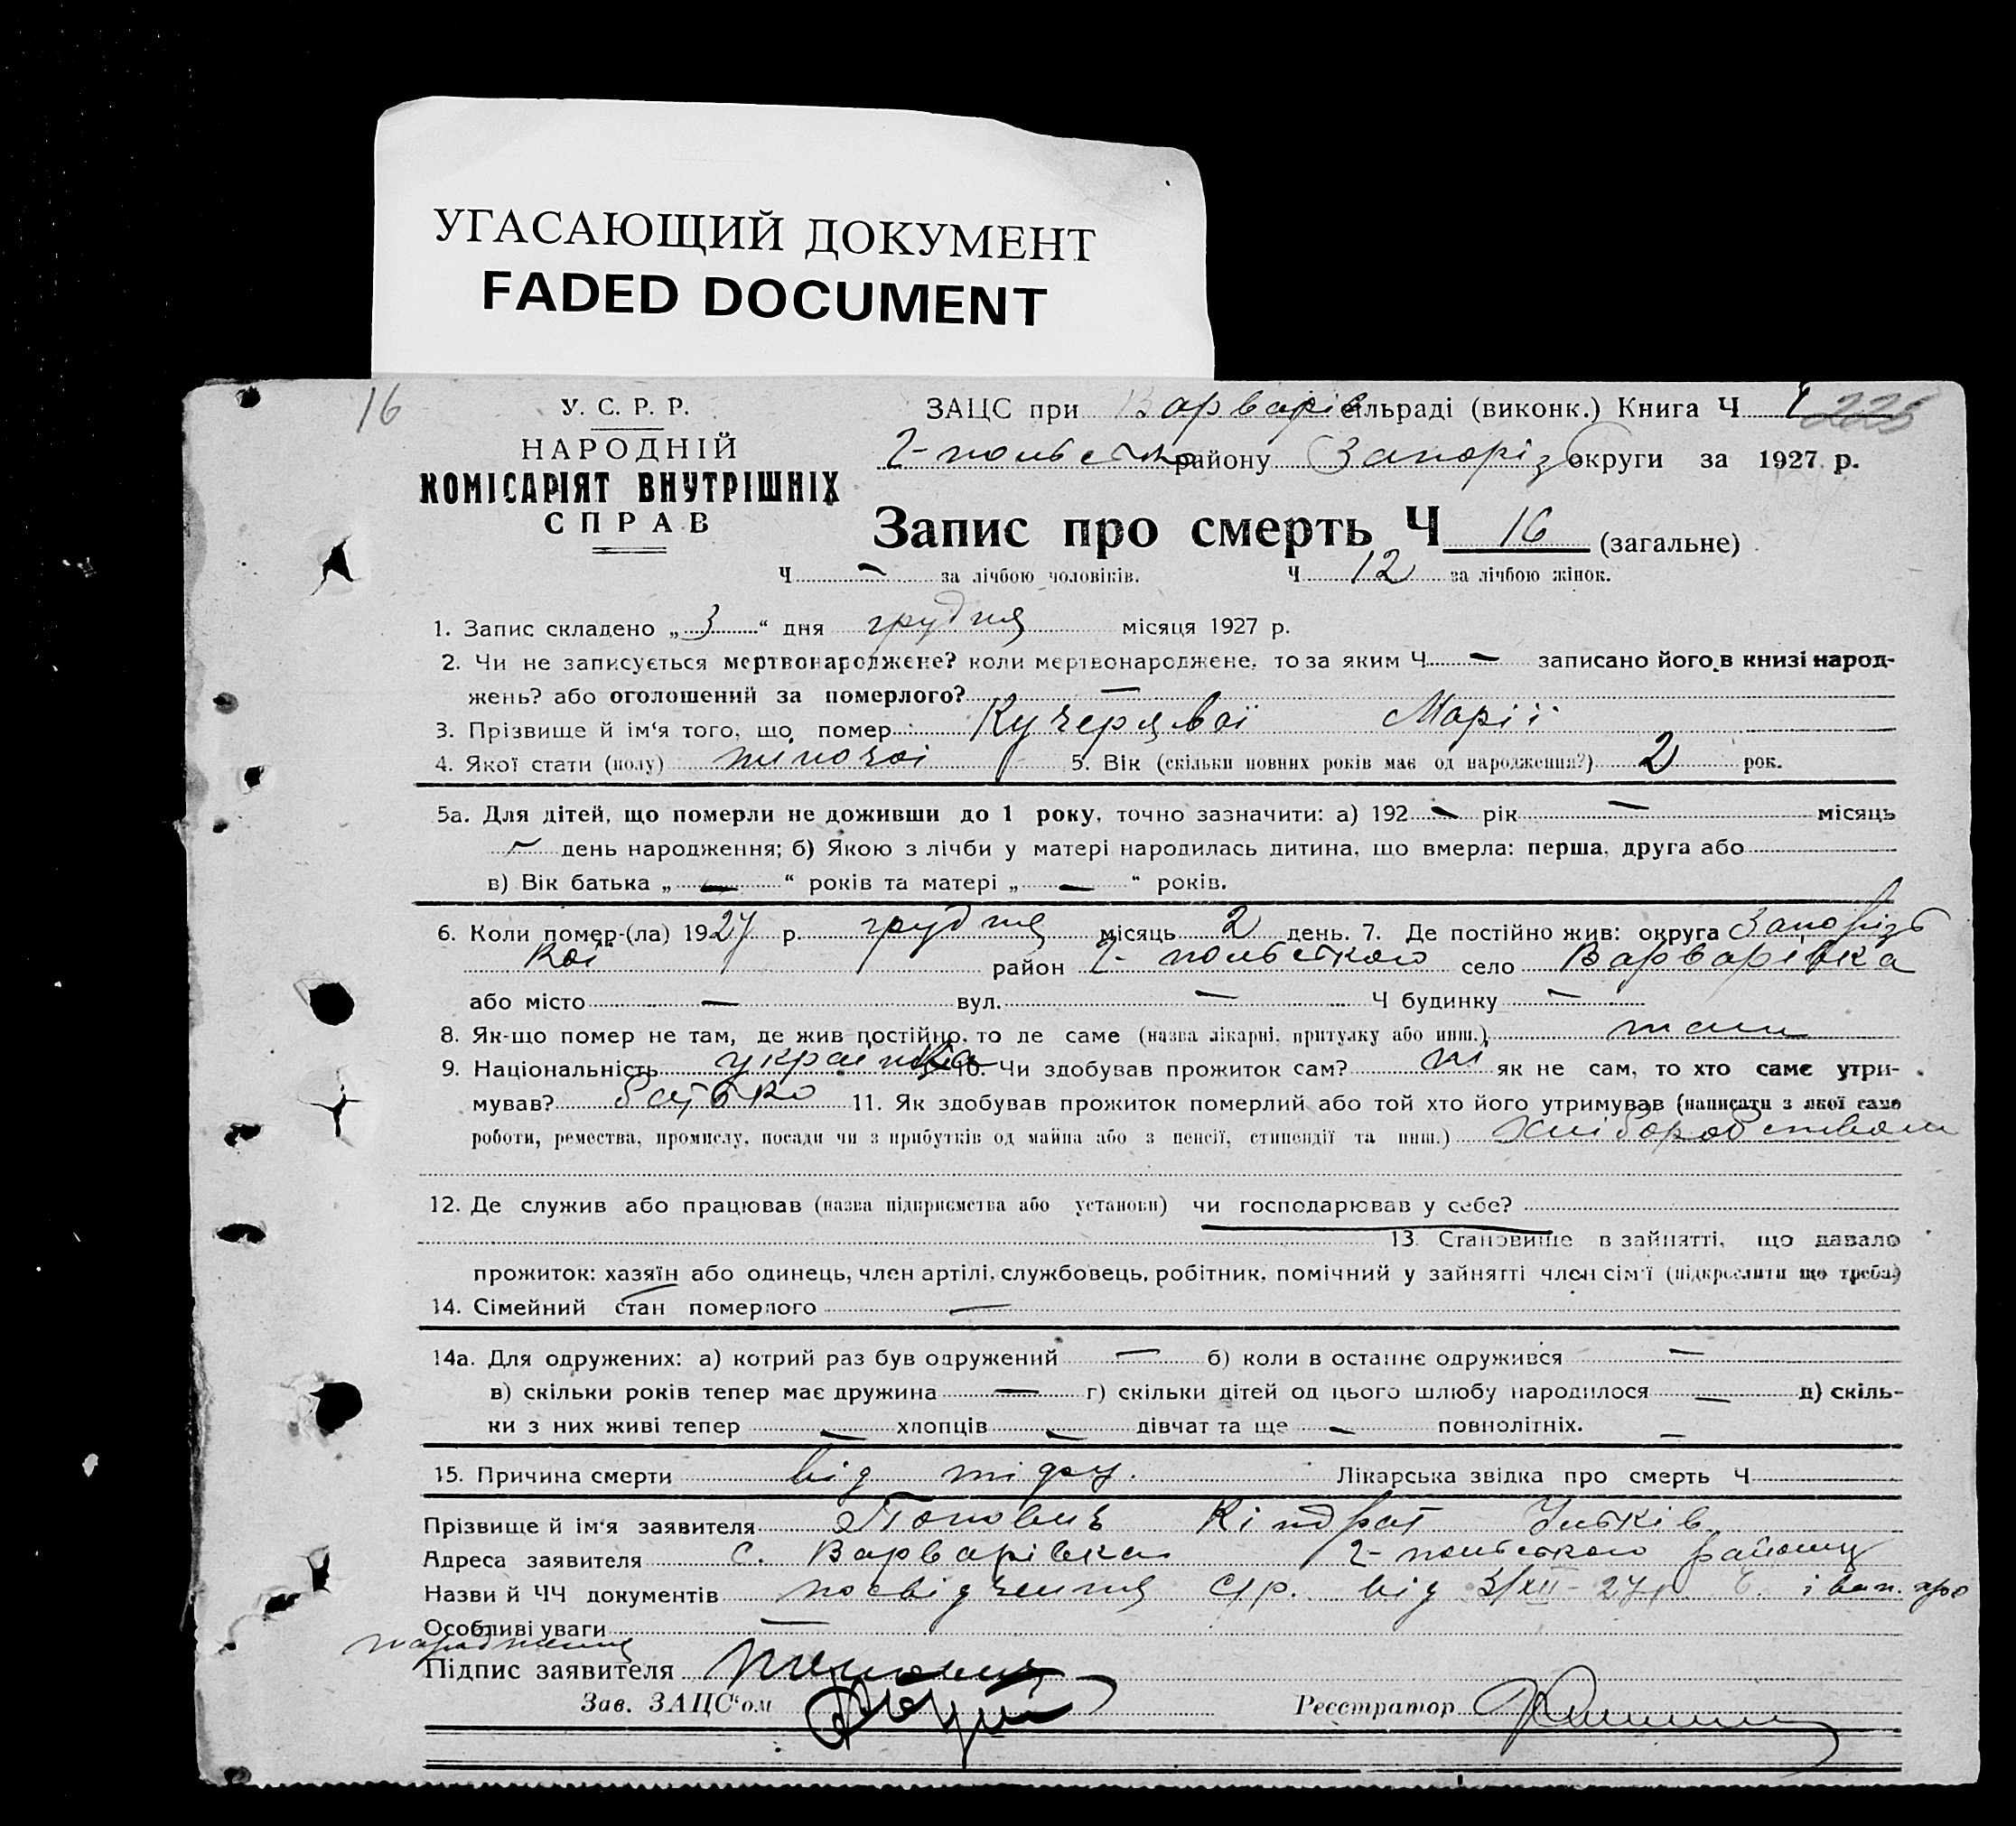 УГАСАЮЩИЙ ДОКУМЕНТ
FADED DOCUMENT
16
У. С. Р. Р.
НАРОДНІЙ
КОМІСАРІЯТ ВНУТРІШНІХ
СПРАВ
ЗАЦС при Варварів сільраді (виконк.) Книга Ч 1 225
Г-польсько району Запоріз округи за 1927 р.
Запис про смерть Ч 16 (загальне)
Ч — за лічбою чоловіків. Ч 12 за лічбою жінок.
1. Запис складено „ 3 “ дня грудня місяця 1927 р.
2. Чи не записується мертвонароджене? коли мертвонароджене, то за яким Ч — записано його в книзі народ-
жень? або оголошений за померлого? —
3. Прізвище й ім'я того, що помер Кучерявої Марії
4. Якої стати (полу) жіночої 5. Вік (скільки повних років має од народження?) 2 рок.
5а. Для дітей, що померли не доживши до 1 року, точно зазначити: а) 192 — рік — місяць
— день народження; б) Якою з лічби у матері народилась дитина, що вмерла: перша, друга або
в) Вік батька „ — “ років та матері „ — “ років.
6. Коли помер-(ла) 1927 р. грудня місяць 2 день. 7. Де постійно жив: округа Запорізь
кої район Г- польського село Варварівка
або місто — вул. — Ч будинку —
8. Як-що помер не там, де жив постійно, то де саме (назва лікарні, притулку або инш.) там
9. Національність українка 10. Чи здобував прожиток сам? ні як не сам, то хто саме утри-
мував? батько 11. Як здобував прожиток померлий або той хто його утримував (написати з якої саме
роботи, ремества, промислу, посади чи з прибутків од майна або з пенсії, стипендії та инш.) хліборобством
12. Де служив або працював (назва підприємства або установи) чи господарював у себе?
13. Становище в зайнятті, що давало
прожиток: хазяїн або одинець, член артілі, службовець, робітник, помічний у зайнятті член сім'ї (підкреслити що треба)
14. Сімейний стан померлого —
14а. Для одружених: а) котрий раз був одружений — б) коли в останнє одружився —
в) скільки років тепер має дружина — г) скільки дітей од цього шлюбу народилося — д) скіль-
ки з них живі тепер — хлопців — дівчат та ще — повнолітніх. —
15. Причина смерти від тіфу. Лікарська звідка про смерть Ч
Прізвище й ім'я заявителя Попович Кіндрат
Адреса заявителя с. Варварівка Г- польського району
Назви й ЧЧ документів посвідчення с/р. від 3/XII-27 р. про
Особливі уваги —
народження
Підпис заявителя Попович
Зав. ЗАЦС'ом Реєстратор